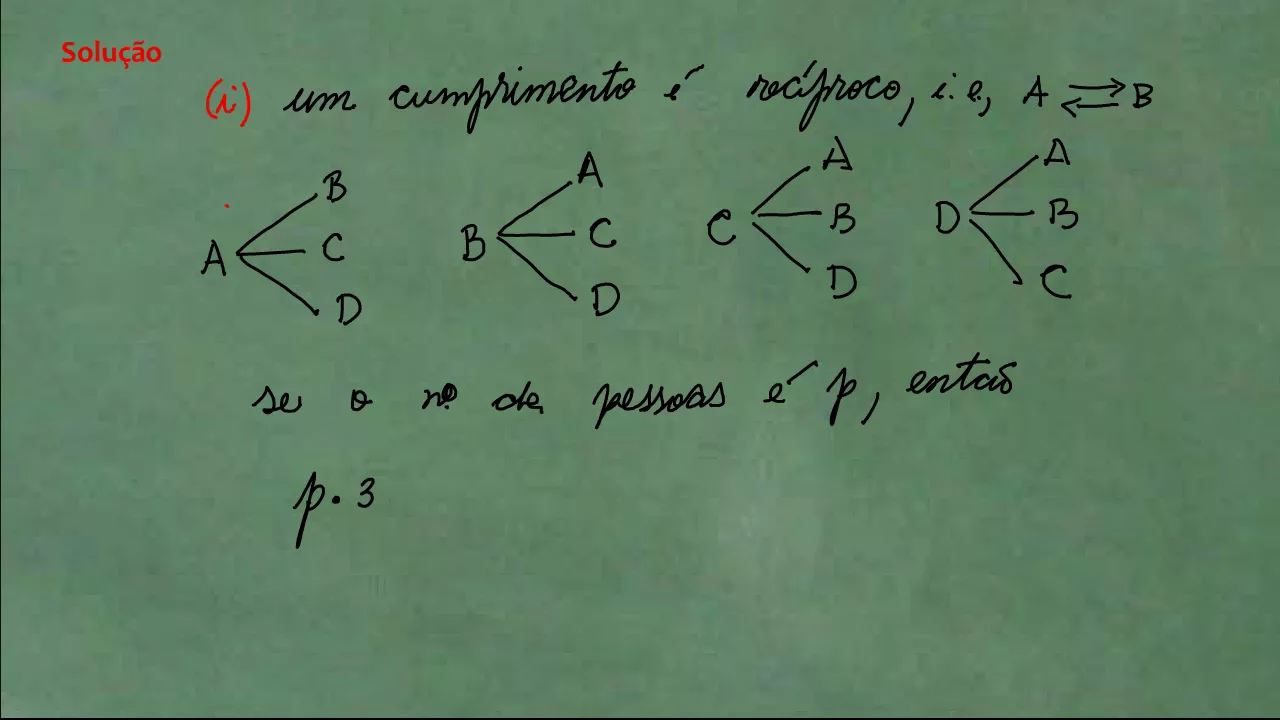 Solução
(i) um cumprimento é recíproco, i.e, A ⇄ B
A B C D
B A C D
C A B D
D A B C
se o nº de pessoas é p, então
p · 3